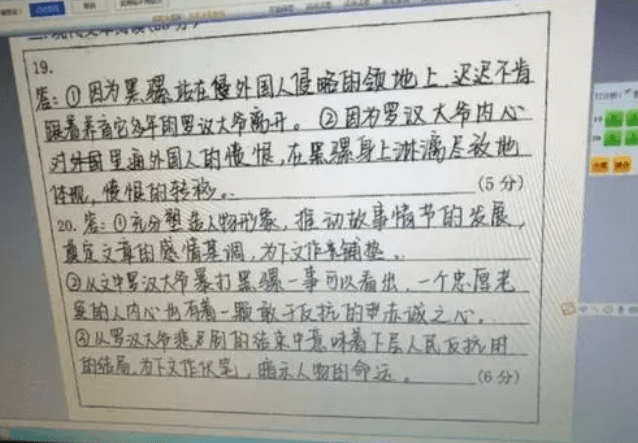 二.现代文本阅读
19.
答:①因为黑骡站在侵外国人侵略的领地上,迟迟不肯
跟着养育它多年的罗汉大爷离开。②因为罗汉大爷内心
对外国里海外国人的愤恨,在黑骡身上淋漓尽致地
体现,愤恨的转移。(5分)
20.答:①充分塑造人物形象,推动故事情节的发展,
奠定文章的感情基调,为下文作来铺垫。
②从文中罗汉大爷暴打黑骡一事可以看出,一个忠厚老
实的人内心也有着一颗敢于反抗的赤诚之心。
③从罗汉大爷悲剧的结束中意味着下层人民反抗
的结局,为下文作伏笔,暗示人物的命运。(6分)